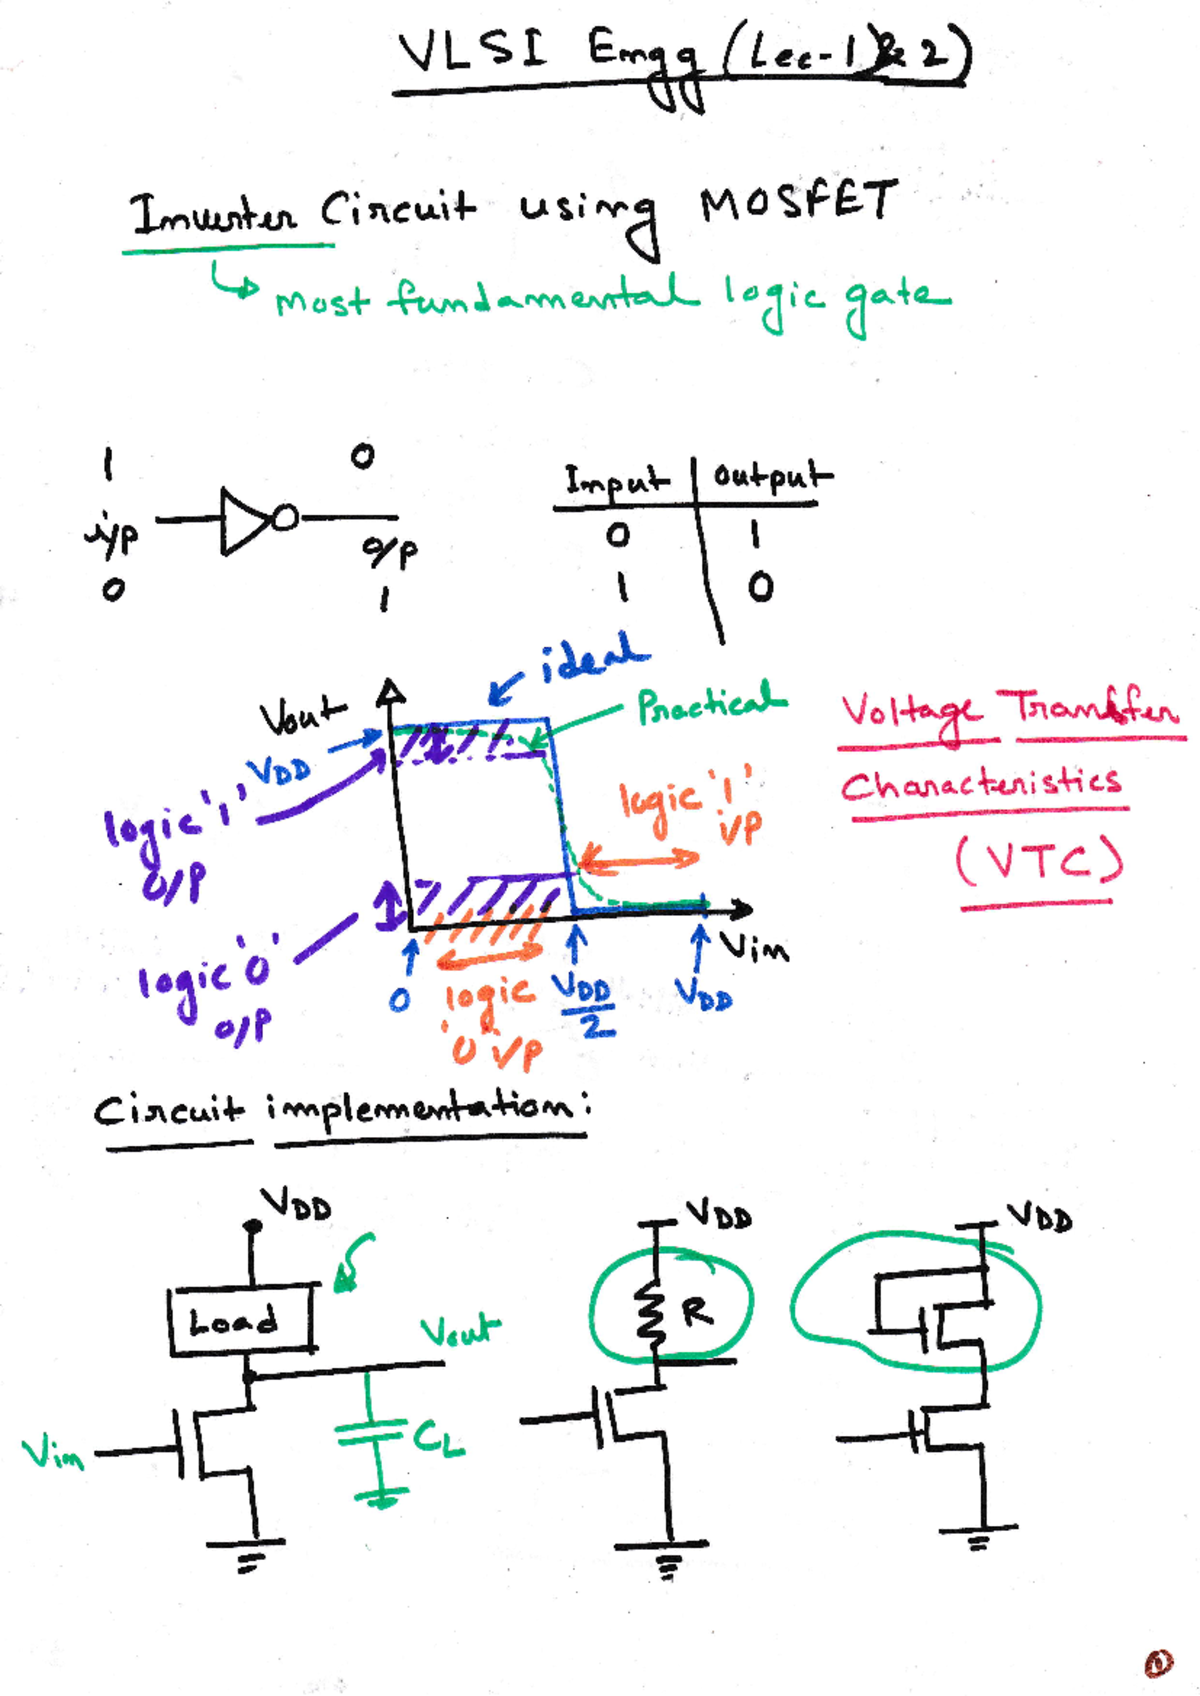 VLSI Engg (Lec-1 & 2)
Inverter Circuit using MOSFET
most fundamental logic gate
1
0
i/p
o/p
0
1
Input Output
0 1
1 0
ideal
Vout
Practical
VDD
logic '1'
O/P
logic '1'
i/p
Voltage Transfer
Characteristics
(VTC)
logic '0'
o/p
0
logic
'0' i/p
VDD
2
VDD
Vin
Circuit implementation:
VDD
Load
Vout
Vin
CL
VDD
R
VDD
1